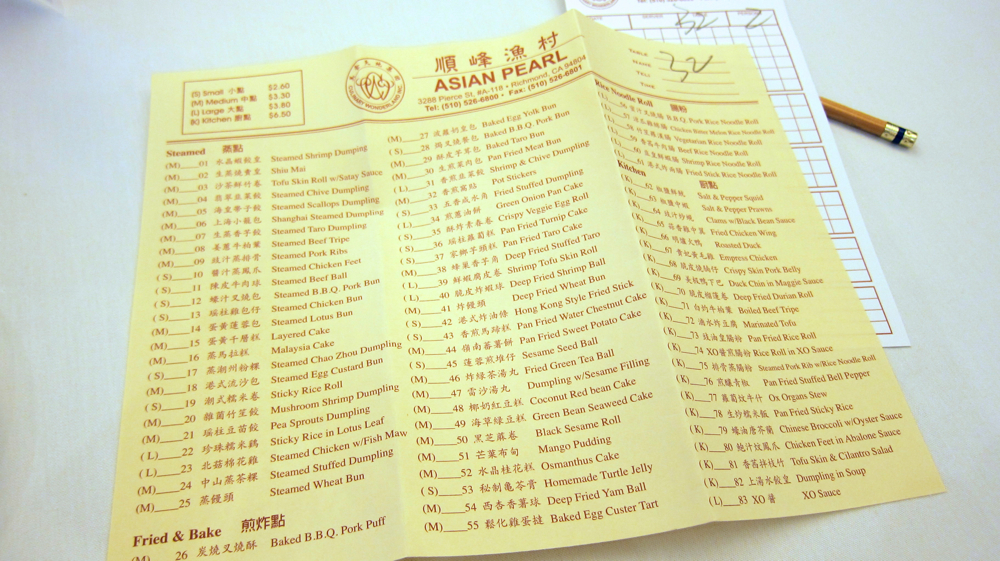 順峰漁村
ASIAN PEARL
3288 Pierce St, #A-118 • Richmond, CA 94804
Tel: (510) 526-6800 • Fax: (510) 526-6801
(S) Small 小點 $2.60
(M) Medium 中點 $3.30
(L) Large 大點 $3.80
(K) Kitchen 廚點 $6.50
Steamed 蒸點
(M)____01 水晶蝦餃皇 Steamed Shrimp Dumping
(M)____02 生蒸燒賣皇 Shiu Mai
(M)____03 沙茶鮮竹卷 Tofu Skin Roll w/Satay Sauce
(M)____04 翡翠韭菜餃 Steamed Chive Dumpling
(M)____05 海皇帶子餃 Steamed Scallops Dumpling
(M)____06 上海小籠包 Shanghai Steamed Dumpling
(M)____07 生蒸香芋餃 Steamed Taro Dumpling
(M)____08 姜蔥牛柏葉 Steamed Beef Tripe
(S)____09 豉汁蒸排骨 Steamed Pork Ribs
(S)____10 醬汁蒸鳳爪 Steamed Chicken Feet
(S)____11 陳皮牛肉球 Steamed Beef Ball
(S)____12 蠔汁叉燒包 Steamed B.B.Q. Pork Bun
(S)____13 瑤柱雞包仔 Steamed Chicken Bun
(M)____14 蛋黃蓮蓉包 Steamed Lotus Bun
(M)____15 蛋黃千層糕 Layered Cake
(M)____16 蒸馬拉糕 Malaysia Cake
(S)____17 蒸潮州粉粿 Steamed Chao Zhou Dumpling
(M)____18 港式流沙包 Steamed Egg Custard Bun
(S)____19 潮式糯米卷 Sticky Rice Roll
(M)____20 雜菌竹笙餃 Mushroom Shrimp Dumpling
(M)____21 瑤柱豆苗餃 Pea Sprouts Dumpling
(L)____22 珍珠糯米鷄 Sticky Rice in Lotus Leaf
(L)____23 北菇棉花雞 Steamed Chicken w/Fish Maw
(M)____24 中山蒸茶粿 Steamed Stuffed Dumpling
(M)____25 蒸饅頭 Steamed Wheat Bun
Fried & Bake 煎炸點
(M)____26 炭燒叉燒酥 Baked B.B.Q. Pork Puff
(M)____27 波蘿奶皇包 Baked Egg Yolk Bun
(S)____28 焗叉燒餐包 Baked B.B.Q. Pork Bun
(M)____29 酥皮芋茸包 Baked Taro Bun
(M)____30 生煎菜肉包 Pan Fried Meat Bun
(L)____31 香煎韭菜餃 Shrimp & Chive Dumpling
(M)____32 香煎窩貼 Pot Stickers
(S)____33 五香咸水角 Fried Stuffed Dumpling
(L)____34 煎蔥油餅 Green Onion Pan Cake
(S)____35 酥炸素春卷 Crispy Veggie Egg Roll
(S)____36 瑤柱蘿蔔糕 Pan Fried Turnip Cake
(S)____37 家鄉芋頭糕 Pan Fried Taro Cake
(M)____38 蜂巢香芋角 Deep Fried Stuffed Taro
(L)____39 鮮蝦腐皮卷 Shrimp Tofu Skin Roll
(L)____40 脆皮炸蝦球 Deep Fried Shrimp Ball
(M)____41 炸饅頭 Deep Fried Wheat Bun
(S)____42 港式炸油條 Hong Kong Style Fried Stick
(S)____43 香煎馬蹄糕 Pan Fried Water Chestnut Cake
(M)____44 嶺南蕃薯餅 Pan Fried Sweet Potato Cake
(S)____45 蓮蓉煎堆仔 Sesame Seed Ball
(M)____46 炸綠茶湯丸 Fried Green Tea Ball
(M)____47 雷沙湯丸 Dumpling w/Sesame Filling
(M)____48 椰奶紅豆糕 Coconut Red bean Cake
(M)____49 海草綠豆糕 Green Bean Seaweed Cake
(M)____50 黑芝蔴卷 Black Sesame Roll
(M)____51 芒菓布甸 Mango Pudding
(M)____52 水晶桂花糕 Osmanthus Cake
(S)____53 秘制龜苓膏 Homemade Turtle Jelly
(M)____54 西杏香薯球 Deep Fried Yam Ball
(M)____55 鬆化雞蛋撻 Baked Egg Custer Tart
Rice Noodle Roll 腸粉
56 B.B.Q. Pork Rice Noodle Roll
57 Chicken Bitter Melon Rice Noodle Roll
58 Vegetarian Rice Noodle Roll
59 Beef Rice Noodle Roll
60 Shrimp Rice Noodle Roll
61 Fried Stick Rice Noodle Roll
Kitchen 廚點
(K)____62 椒鹽鮮魷 Salt & Pepper Squid
(K)____63 椒鹽中蝦 Salt & Pepper Prawns
(K)____64 豉汁炒蜆 Clams w/Black Bean Sauce
(K)____65 蒜香雞中翼 Fried Chicken Wing
(K)____66 明爐火鴨 Roasted Duck
(K)____67 貴妃黃毛雞 Empress Chicken
(K)____68 脆皮燒腩仔 Crispy Skin Pork Belly
(K)____69 美極鴨下巴 Duck Chin in Maggie Sauce
(K)____70 脆皮榴蓮卷 Deep Fried Durian Roll
(K)____71 白灼牛柏葉 Boiled Beef Tripe
(K)____72 滷水炸豆腐 Marinated Tofu
(K)____73 豉油皇腸粉 Pan Fried Rice Roll
(K)____74 XO醬煎腸粉 Rice Roll in XO Sauce
(K)____75 排骨蒸腸粉 Steamed Pork Rib w/Rice Noodle Roll
(K)____76 煎釀青椒 Pan Fried Stuffed Bell Pepper
(K)____77 蘿蔔炆牛什 Ox Organs Stew
(K)____78 生炒糯米飯 Pan Fried Sticky Rice
(K)____79 蠔油唐芥蘭 Chinese Broccoli w/Oyster Sauce
(K)____80 鮑汁炆鳳爪 Chicken Feet in Abalone Sauce
(K)____81 香茜拌枝竹 Tofu Skin & Cilantro Salad
(K)____82 上湯水餃皇 Dumpling in Soup
(L)____83 XO 醬 XO Sauce
TABLE 32
NAME
TEL:
TIME
SERVER
32 2